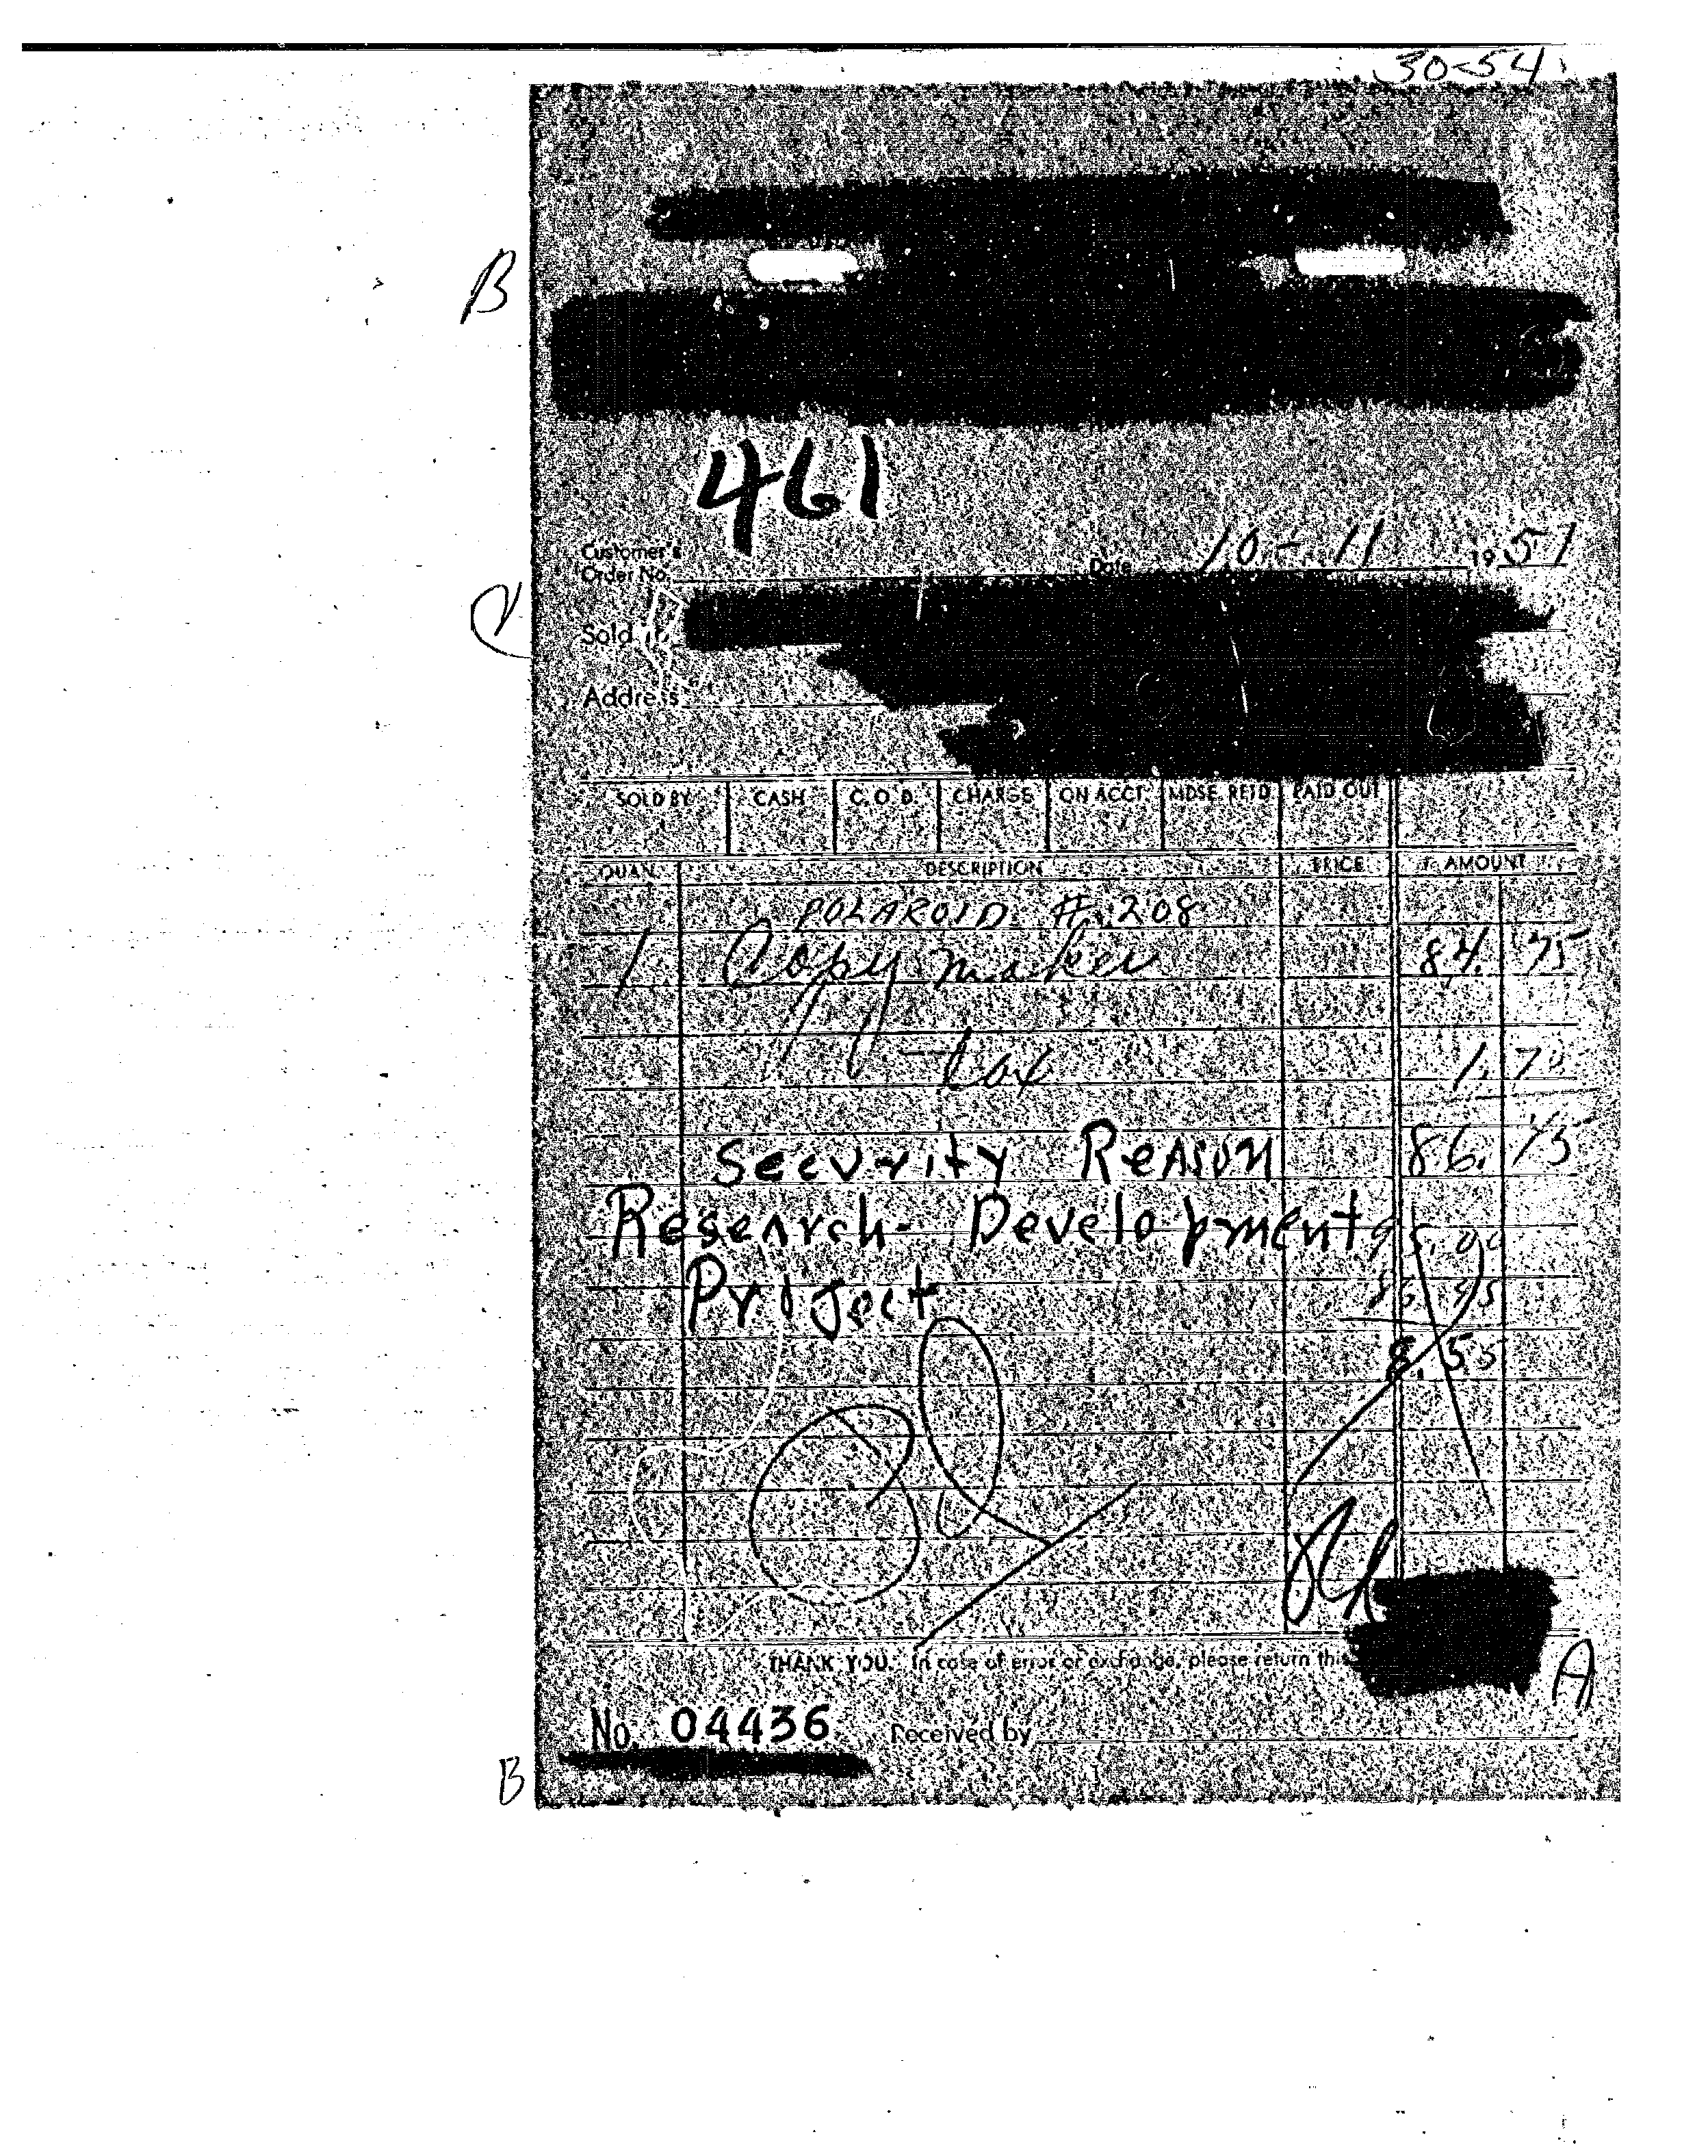 30-54
B
461
Customer's
Order No. Date 10 - 11 19 57
C
Sold
Address
SOLD BY CASH C.O.D. CHARGE ON ACCT. MDSE. RETD. PAID OUT
QUAN. DESCRIPTION PRICE AMOUNT
POLAROID # 208
1 Copy maker 84.75
Tax 1.70
Security Reason 86.45
Research- Development
95.00
Project 86.45
8.55
THANK YOU. In case of error or exchange, please return this
A
No. 04436 Received by
B